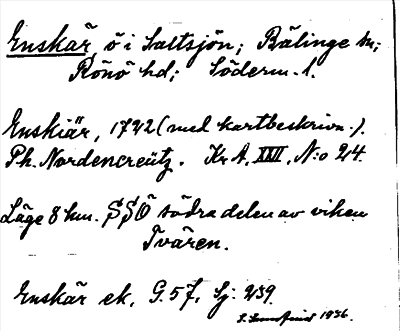 Enskär, ö i Saltsjön; Bälinge sn;
Rönö hd; Söderm. l.
Enskiär, 1742 (med kartbeskrivn.).
Ph. Nordencreütz. Kr. A. XXII, N:o 24.
Läge 8 km. SSÖ södra delen av viken
Tvären.
Enskär ek. G. 57. Sj: 239.
1936.